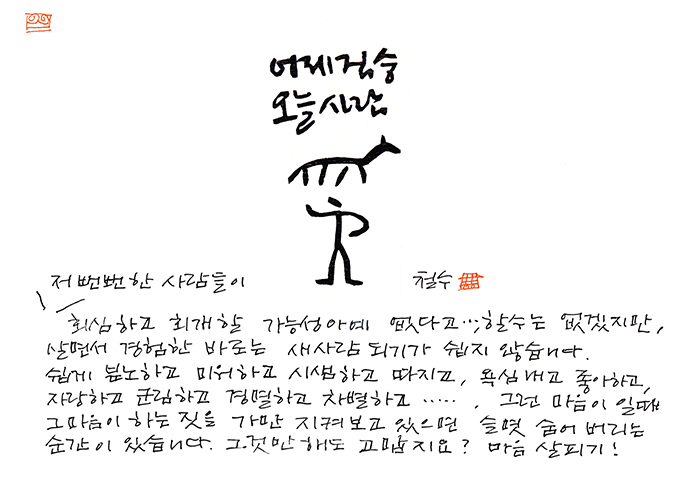 어제짐승
오늘사람
저 뻔뻔한 사람들이
철수
회심하고 회개할 가능성아예 없다고…,할수는 없겠지만,
살면서 경험한 바로는 새사람되기가 쉽지 않습니다.
쉽게 분노하고 미워하고 시샘하고 따지고, 욕심내고 좋아하고,
자랑하고 군림하고 경멸하고 차별하고 ……, 그런 마음이 일때
그마음이 하는 짓을 가만 지켜보고 있으면 슬몃 숨어 버리는
순간이 있습니다. 그것만 해도 고맙지요? 마음 살피기!